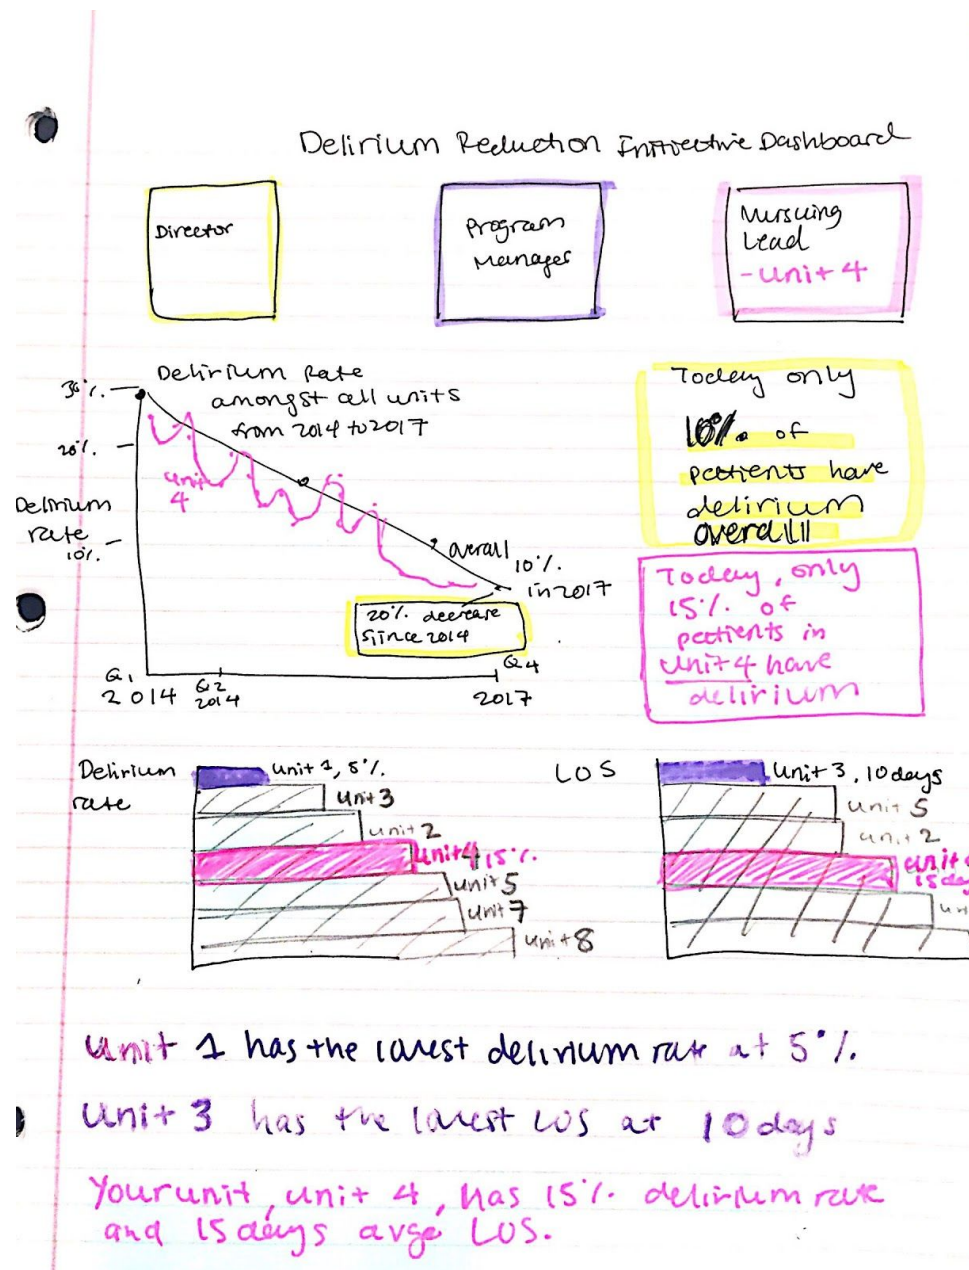 Delirium Reduction Initiective Dashboard
Director
Program
Manager
Nursuing
Lead
- Unit 4
Delirium Rate
amongst all units
from 2014 to 2017
30%.
20%.
10%.
Delirium
rate
unit
4
overall
10%.
in 2017
20%. decrease
Siince 2014
Q1
2014
Q2
2014
Q4
2017
Today only
10%. of
patients have
delirium
overall
Today, only
15%. of
patients in
unit 4 have
delirium
Delirium
rate
unit 1, 5%.
unit 3
unit 2
unit 4 15%.
unit 5
unit 7
unit 8
LOS
unit 3, 10 days
unit 5
unit 2
unit
15 day
un
Unit 1 has the lowest delirium rate at 5%.
Unit 3 has the lowest LOS at 10 days
Your unit, unit 4, has 15%. delirium rate
and 15 days avge LOS.